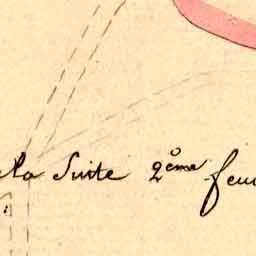 la Suite 2ème feui